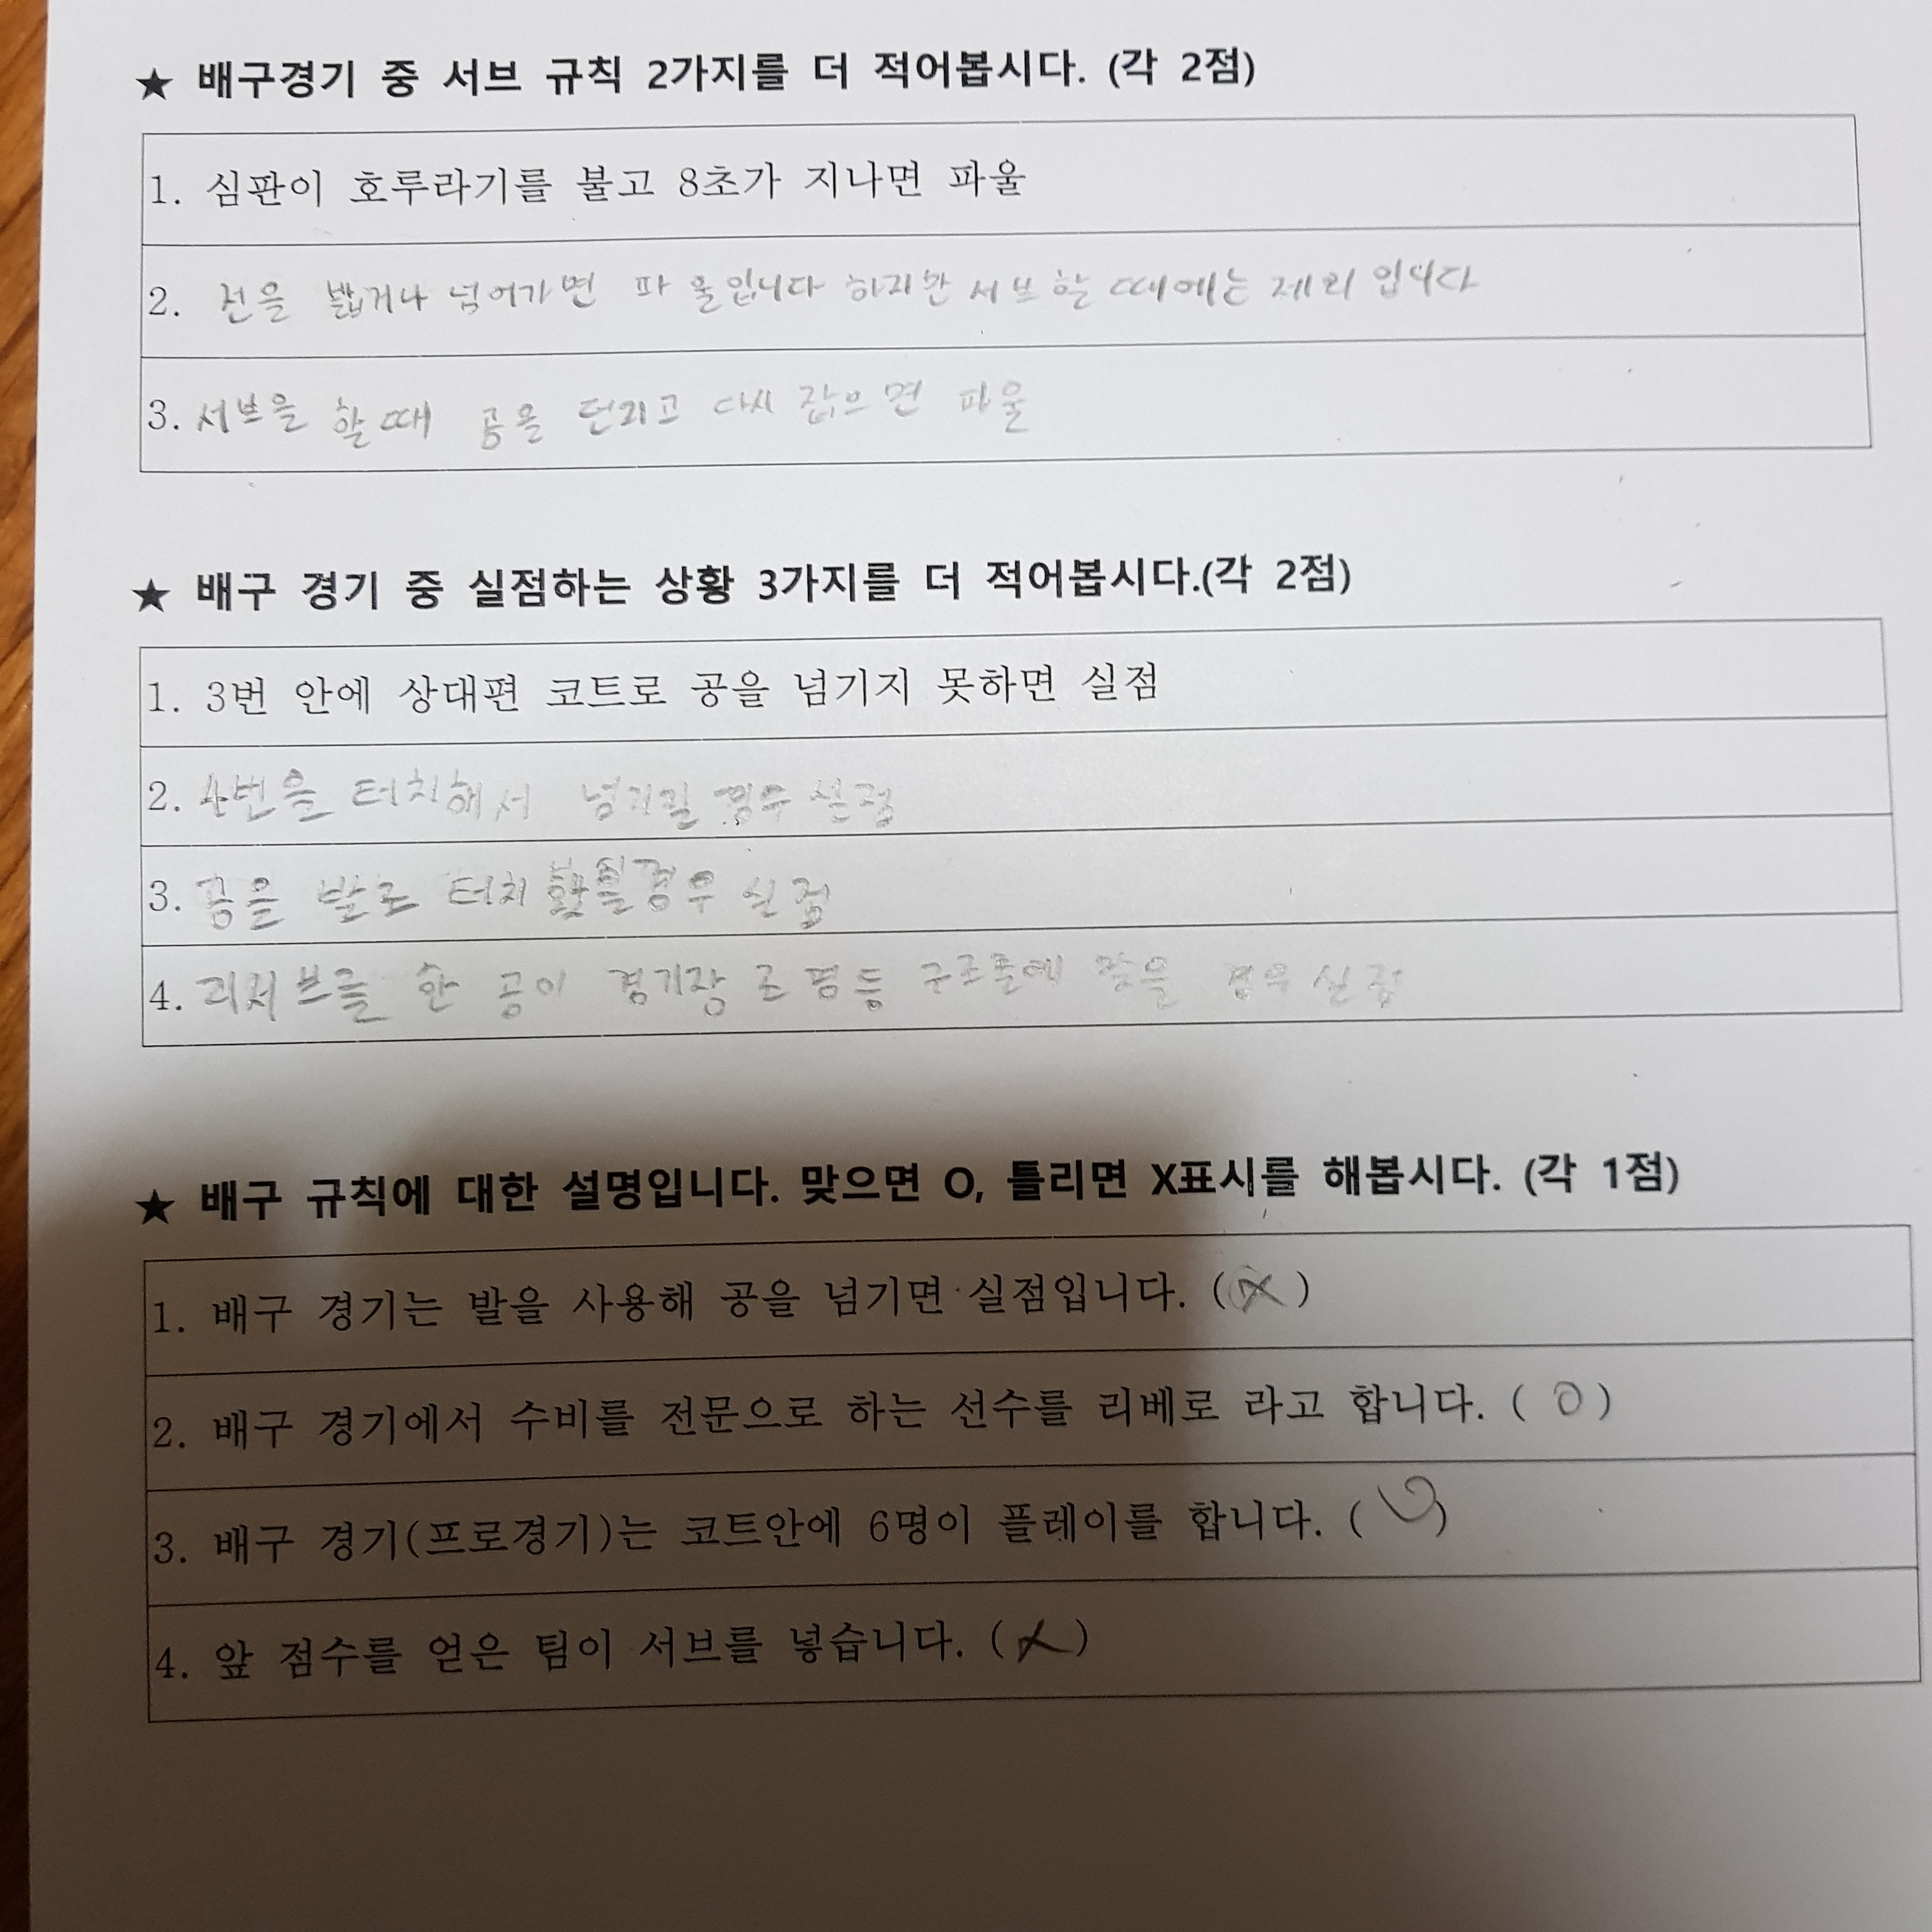 ★ 배구경기 중 서브 규칙 2가지를 더 적어봅시다. (각 2점)
1. 심판이 호루라기를 불고 8초가 지나면 파울
2. 선을 밟거나 넘어가면 파울입니다 하지만 서브 할 때에는 제외 입니다
3. 서브을 할 때 공을 던지고 다시 잡으면 파울
★ 배구 경기 중 실점하는 상황 3가지를 더 적어봅시다.(각 2점)
1. 3번 안에 상대편 코트로 공을 넘기지 못하면 실점
2. 4번을 터치해서 넘기길 경우 실점
3. 공을 발로 터치 경우 실점
4. 리시브를 한 공이 경기장 조명등 구조물에 맞을 경우 실점
★ 배구 규칙에 대한 설명입니다. 맞으면 O, 틀리면 X표시를 해봅시다. (각 1점)
1. 배구 경기는 발을 사용해 공을 넘기면 실점입니다. (X)
2. 배구 경기에서 수비를 전문으로 하는 선수를 리베로 라고 합니다. ( O )
3. 배구 경기(프로경기)는 코트안에 6명이 플레이를 합니다. (O)
4. 앞 점수를 얻은 팀이 서브를 넣습니다. (X)